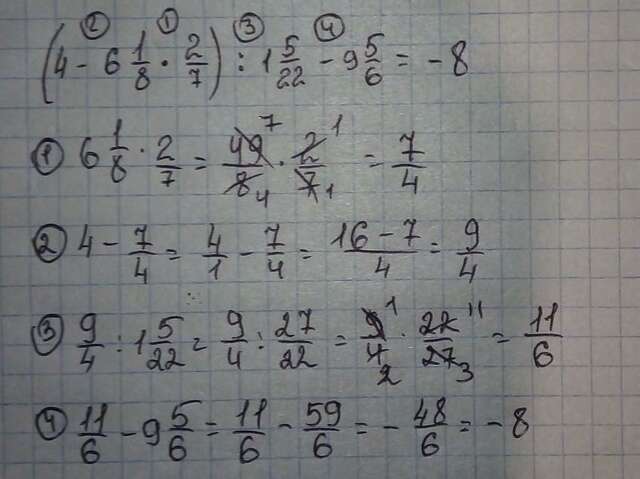 ② ① ③ ④
(4 - 6 1/8 · 2/7) : 1 5/22 - 9 5/6 = -8
① 6 1/8 · 2/7 = 49 7/8 4 · 2 1/7 1 = 7/4
② 4 - 7/4 = 4/1 - 7/4 = 16 - 7/4 = 9/4
③ 9/4 : 1 5/22 = 9/4 : 27/22 = 9 1/4 2 · 22 11/27 3 = 11/6
④ 11/6 - 9 5/6 = 11/6 - 59/6 = - 48/6 = -8